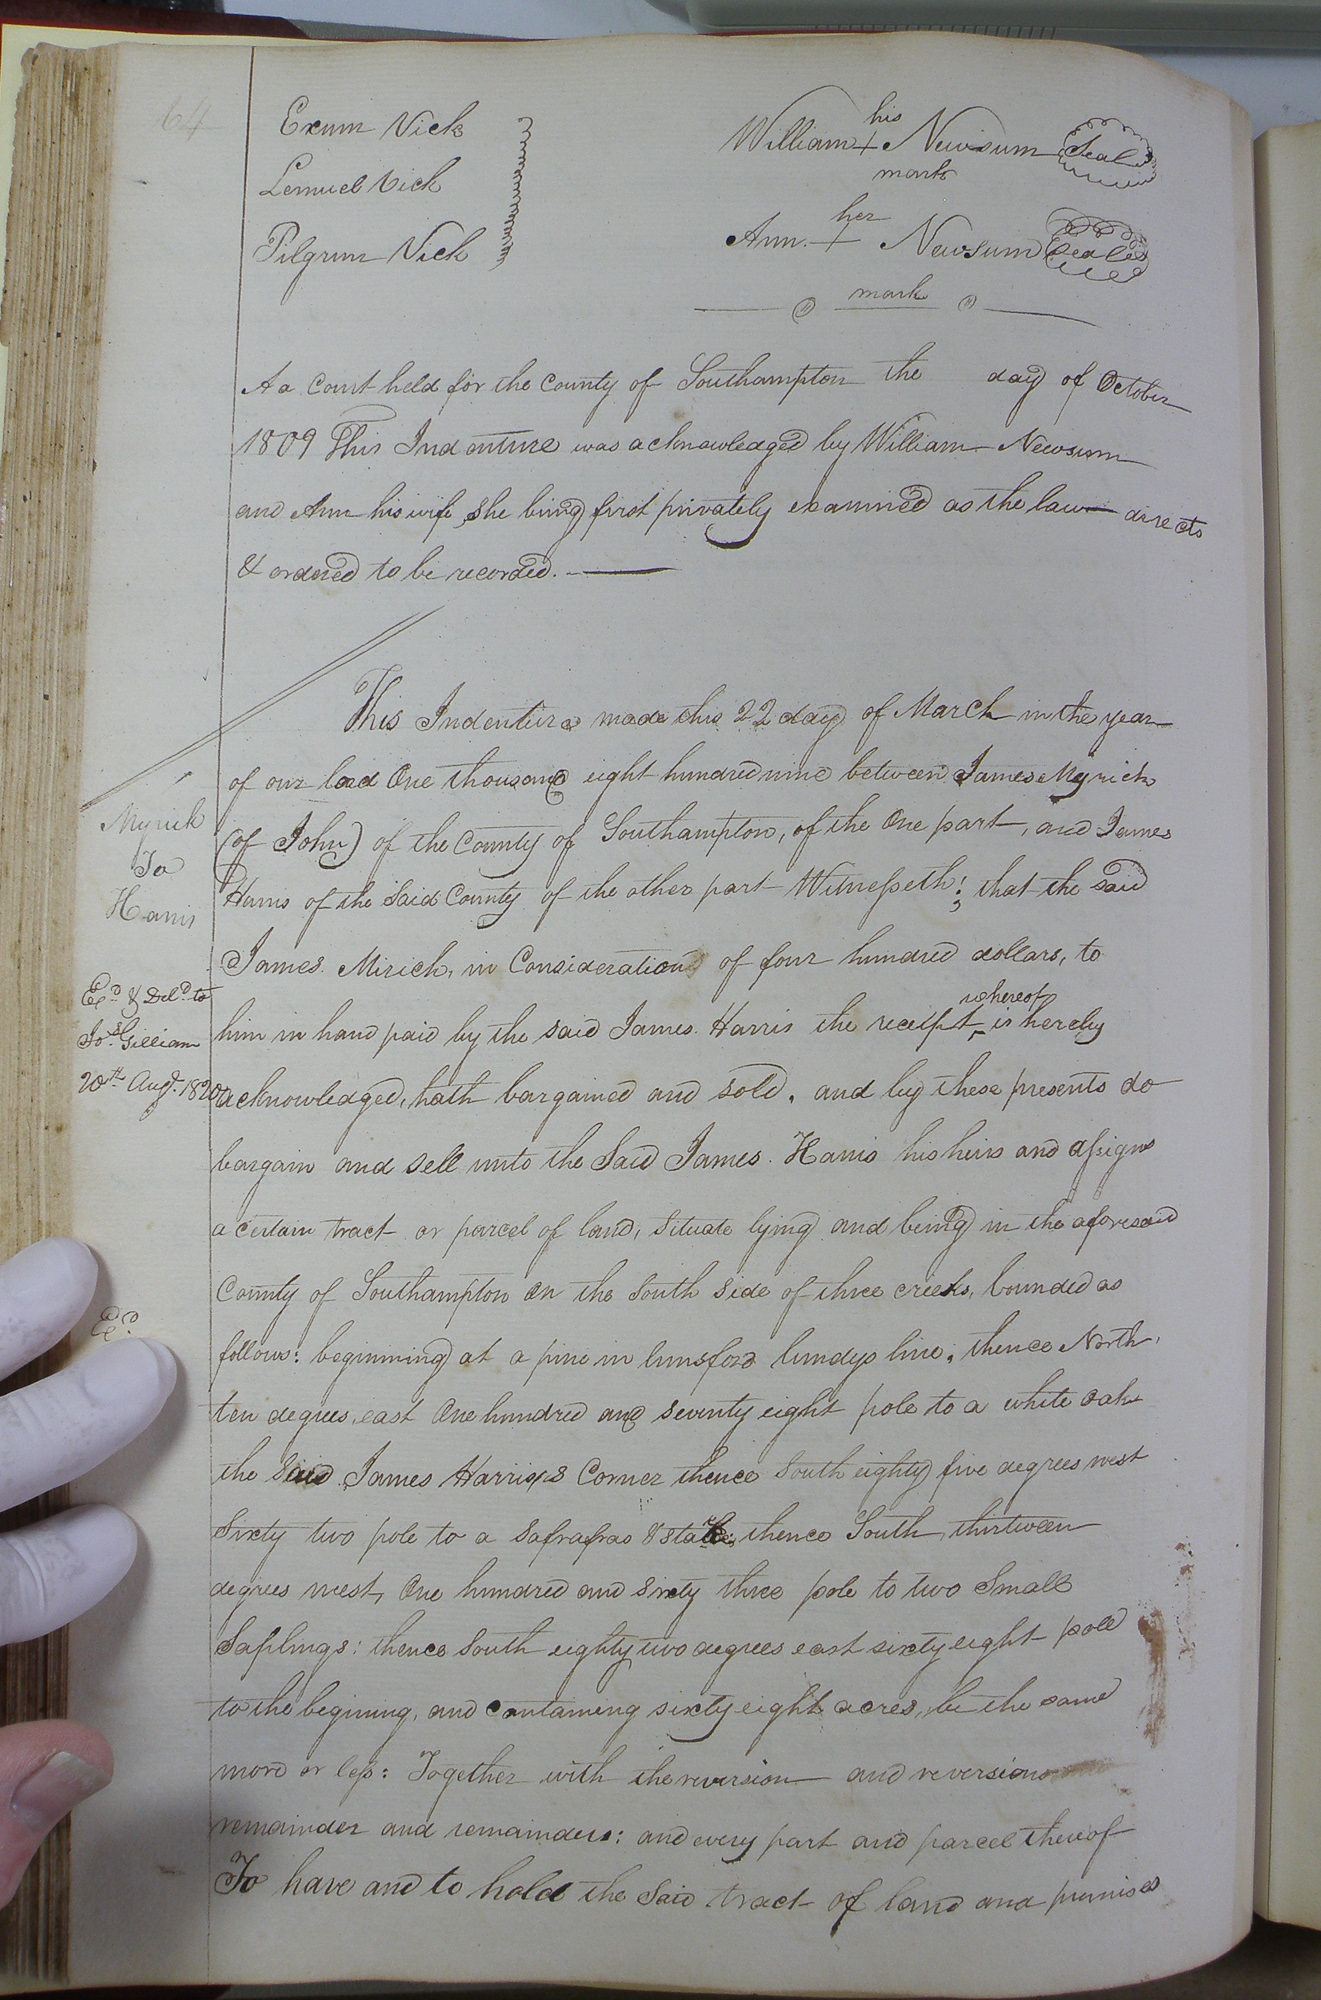 64
Exum Vick
Lemuel Vick
Pilgrim Vick
his
William + Newsum Seal
mark
her
Ann + Newsum Seal
mark
At a Court held for the County of Southampton the day of October
1809 This Indenture was acknowledged by William Newsum
and Ann his wife, she being first privately examined as the law directs
& ordered to be recorded.
This Indenture made this 22 day of March in the year
of our lord One thousand eight hundred nine between James Myrick
(of John) of the County of Southampton, of the One part, and James
Harris of the Said County of the other part Witnesseth; that the said
James Mirick, in Consideration of four hundred dollars, to
whereof
him in hand paid by the said James Harris the receipt ^ is hereby
acknowledged, hath bargained and sold, and by these presents do
bargain and sell unto the Said James Harris his heirs and assigns
a certain tract or parcel of land, situate lying and being in the aforesaid
County of Southampton on the South side of three creeks, bounded as
follows: beginning at a pine in lunsford lundys line; thence North
ten degrees east One hundred and seventy eight pole to a white oak
the said James Harris's Corner thence South eighty five degrees west
Sixty two pole to a Safsafras & stake; thence South thirteen
degrees west, One hundred and sixty three pole to two Small
Saplings: thence South eighty two degrees east sixty eight pole
to the begining, and containing sixty eight acres, be the same
more or less: Together with the reversion and reversions
remainder and remainders: and every part and parcel thereof
To have and to hold the Said tract of land and premises
Myrick
To
Harris
Exd. & Deld. to
Jos. Gilliam
20th Augt. 1820
Exd.